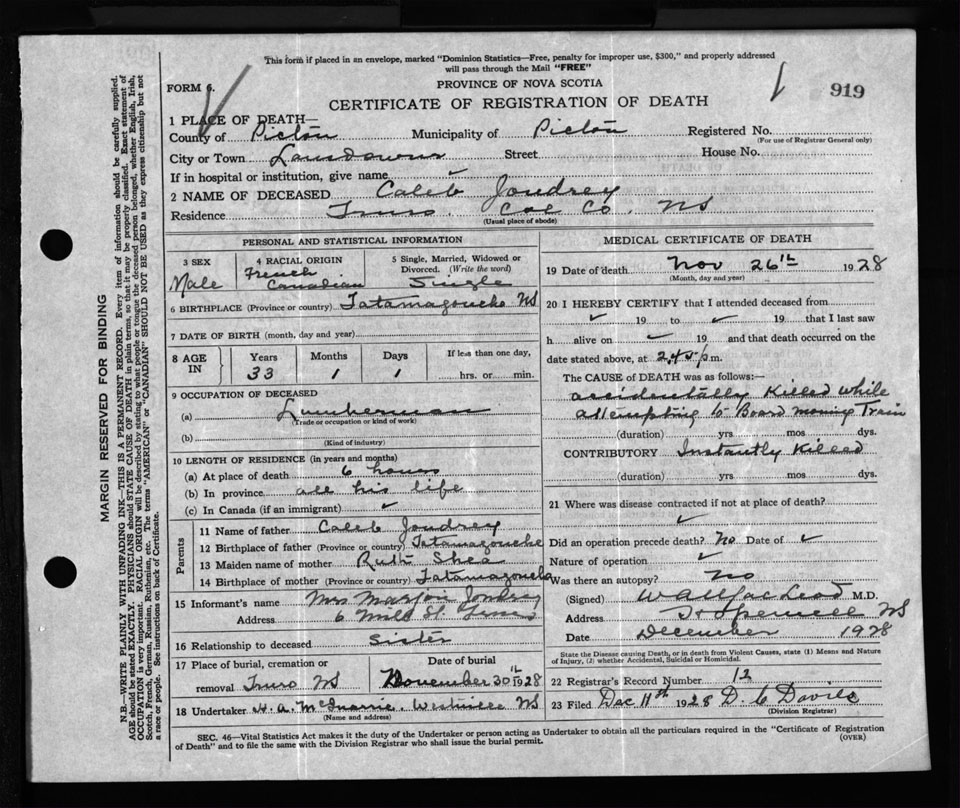 This form if placed in an envelope, marked "Dominion Statistics—Free, penalty for improper use, $300," and properly addressed
will pass through the Mail "FREE"
FORM 6.
PROVINCE OF NOVA SCOTIA
919
CERTIFICATE OF REGISTRATION OF DEATH
1 PLACE OF DEATH—
County of Pictou Municipality of Pictou Registered No.
(For use of Registrar General only)
City or Town Lansdowne Street House No.
If in hospital or institution, give name
2 NAME OF DECEASED Caleb Joudrey
Residence Truro. Col Co. NS
(Usual place of abode)
PERSONAL AND STATISTICAL INFORMATION
3 SEX Male
4 RACIAL ORIGIN French Canadian
5 Single, Married, Widowed or Divorced. (Write the word) Single
6 BIRTHPLACE (Province or country) Tatamagouche NS
7 DATE OF BIRTH (month, day and year)
8 AGE IN Years Months Days If less than one day,
33 1 1 hrs. or min.
9 OCCUPATION OF DECEASED
(a) Lumberman
(Trade or occupation or kind of work)
(b)
(Kind of industry)
10 LENGTH OF RESIDENCE (in years and months)
(a) At place of death 6 hours
(b) In province all his life
(c) In Canada (if an immigrant) ✓
Parents
11 Name of father Caleb Joudrey
12 Birthplace of father (Province or country) Tatamagouche
13 Maiden name of mother Ruth Shea
14 Birthplace of mother (Province or country) Tatamagouche
15 Informant's name Mrs Joudrey
Address 6 St. Truro
16 Relationship to deceased Sister
17 Place of burial, cremation or removal Truro NS
Date of burial November 30th 1928
18 Undertaker Westville NS
(Name and address)
MEDICAL CERTIFICATE OF DEATH
19 Date of death Nov 26th 1928
(Month, day and year)
20 I HEREBY CERTIFY that I attended deceased from
✓ 19 to ✓ 19 that I last saw
h alive on ✓ 19 and that death occurred on the
date stated above, at 2.45 p.m.
The CAUSE of DEATH was as follows:—
accidentally Killed while
attempting to Board moving Train
(duration) yrs mos dys.
CONTRIBUTORY Instantly Killed
(duration) yrs. mos dys.
21 Where was disease contracted if not at place of death?
✓
Did an operation precede death? No Date of ✓
Nature of operation ✓
Was there an autopsy? no
(Signed) M.D.
Address Hopewell NS
Date December 1928
State the Disease causing Death, or in death from Violent Causes, state (1) Means and Nature
of Injury, (2) whether Accidental, Suicidal or Homicidal.
22 Registrar's Record Number 12
23 Filed Dec 11th 1928 D. C Davies
(Division Registrar)
SEC. 46—Vital Statistics Act makes it the duty of the Undertaker or person acting as Undertaker to obtain all the particulars required in the "Certificate of Registration
of Death" and to file the same with the Division Registrar who shall issue the burial permit.
(OVER)
MARGIN RESERVED FOR BINDING
N.B.—WRITE PLAINLY WITH UNFADING INK—THIS IS A PERMANENT RECORD. Every item of information should be carefully supplied.
AGE should be stated EXACTLY. PHYSICIANS should STATE CAUSE OF DEATH in plain terms, so that it may be properly classified. Exact statement of
OCCUPATION is very important. RACIAL ORIGIN will be described by stating to what people or tongue the deceased person belonged, whether English, Irish,
Scotch, French, German, Russian, Ruthenian, etc. The terms "AMERICAN" or "CANADIAN" SHOULD NOT BE USED as they express citizenship but not
a race or people. See instructions on back of Certificate.